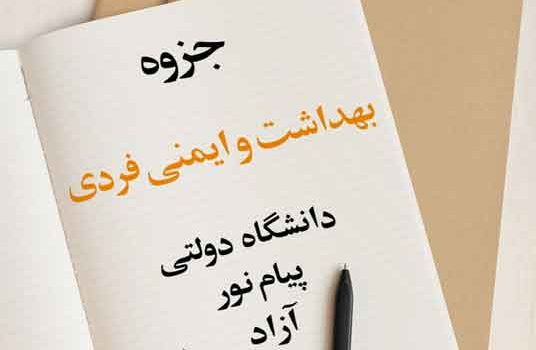 جزوه
بهداشت و ایمنی فردی
دانشگاه دولتی
پیام نور
آزاد